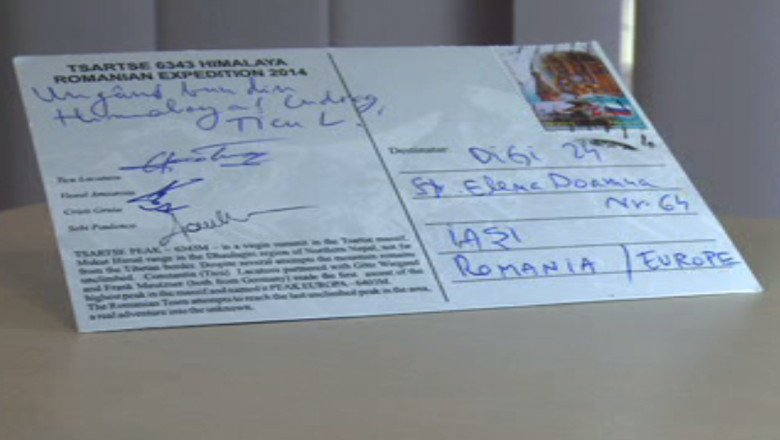 TSARTSE 6343 HIMALAYA
ROMANIAN EXPEDITION 2014
Un gând bun din
Himalaya!
Ticu L.
Ticu Lacatusu
Sebi
TSARTSE PEAK - 6343M - is a virgin summit in the Tsartse massif,
Mukut Himal range in the Dhaulagiri regions of Northern Nepal, not far
from the Tibetan border. Despite several attempts the mountain remains
unclimbed. Constantin (Ticu) Lacatusu partner with
and Frank Meutzner (both from Germany) made the first ascent of the
highest peak in the massif and named it PEAK EUROPA - 6403M.
The Romanian Team attempts to reach the last unclimbed peak in the area,
a real adventure into the unknown.
Destinatar:
Digi 24
Str. Elena Doamna
Nr. 64
IAȘI
ROMANIA / EUROPE